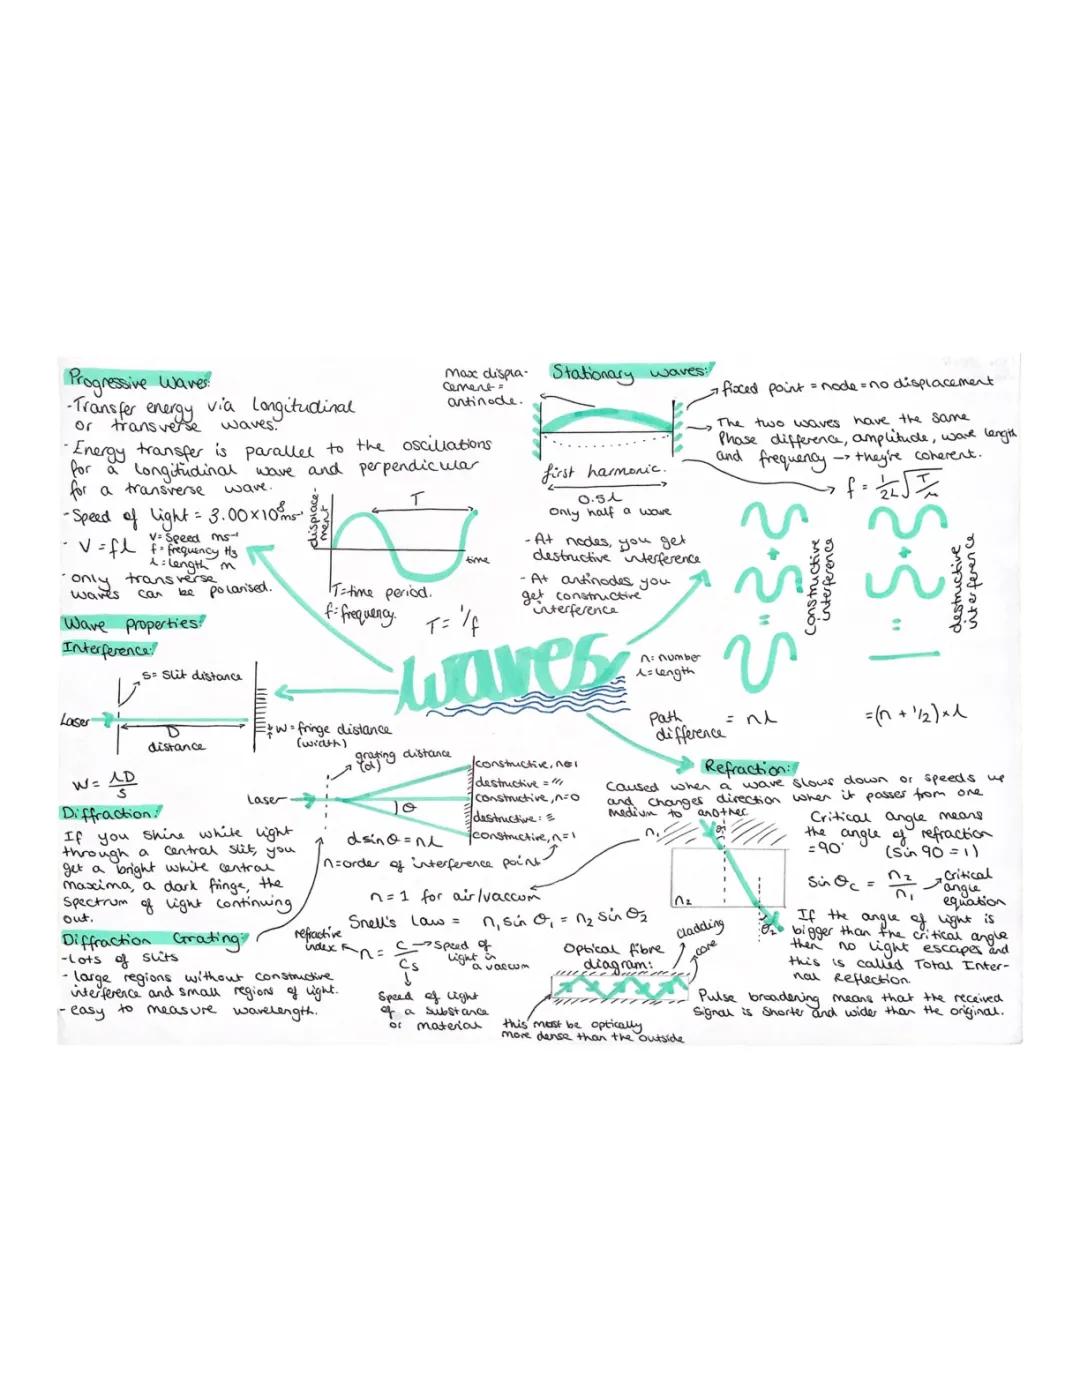 Progressive Waves:
-Transfer energy via longitudinal
or transverse waves.
-Energy transfer is parallel to the oscillations
for a longitudinal wave and perpendicular
for a transverse wave.
-Speed of light = 3.00×10⁸ms⁻¹
- V = fλ
V=Speed ms⁻¹
f=frequency Hz
λ=length m
-only transverse
waves can be polarised.
displace-
ment
T
time
T=time period.
f=frequency.
T = 1/f
max displa-
cement =
antinode.
Stationary waves:
fixed point = node = no displacement
The two waves have the same
Phase difference, amplitude, wave length
and frequency → they're coherent.
f = 1/2L √T/μ
first harmonic.
0.5λ
only half a wave
-At nodes, you get
destructive interference
-At antinodes you
get constructive
interference
+
=
Constructive
interference
+
=
destructive
interference
n=number
λ=length
Path
difference = nλ
=(n + 1/2)×λ
waves
Wave properties:
Interference:
s= slit distance
Laser
D
distance
w=fringe distance
(width)
w= λD/s
Diffraction:
If you shine white light
through a central slit, you
get a bright white central
maxima, a dark fringe, the
spectrum of light continuing
out.
Diffraction Grating:
-lots of slits
-large regions without constructive
interference and small regions of light.
-easy to measure wavelength.
grating distance
(d)
Laser
θ
constructive, n=1
destructive
constructive, n=0
destructive
constructive, n=1
dsinθ = nλ
n=order of interference point
n=1 for air/vaccum
Snell's Law = n₁ sin θ₁ = n₂ sin θ₂
refractive
index
n= c/cs
speed of
light in
a vaccum
Speed of light
of a substance
or material
Refraction:
Caused when a wave slows down or speeds up
and changes direction when it passes from one
medium to another
n₁
n₂
θ₁
θ₂
Critical angle means
the angle of refraction
=90° (Sin 90 = 1)
Sin θc = n₂/n₁
Critical
angle
equation
If the angle of light is
bigger than the critical angle
then no light escapes and
this is called Total Inter-
nal Reflection.
Optical fibre
diagram:
cladding
core
this must be optically
more dense than the outside
Pulse broadening means that the received
signal is shorter and wider than the original.